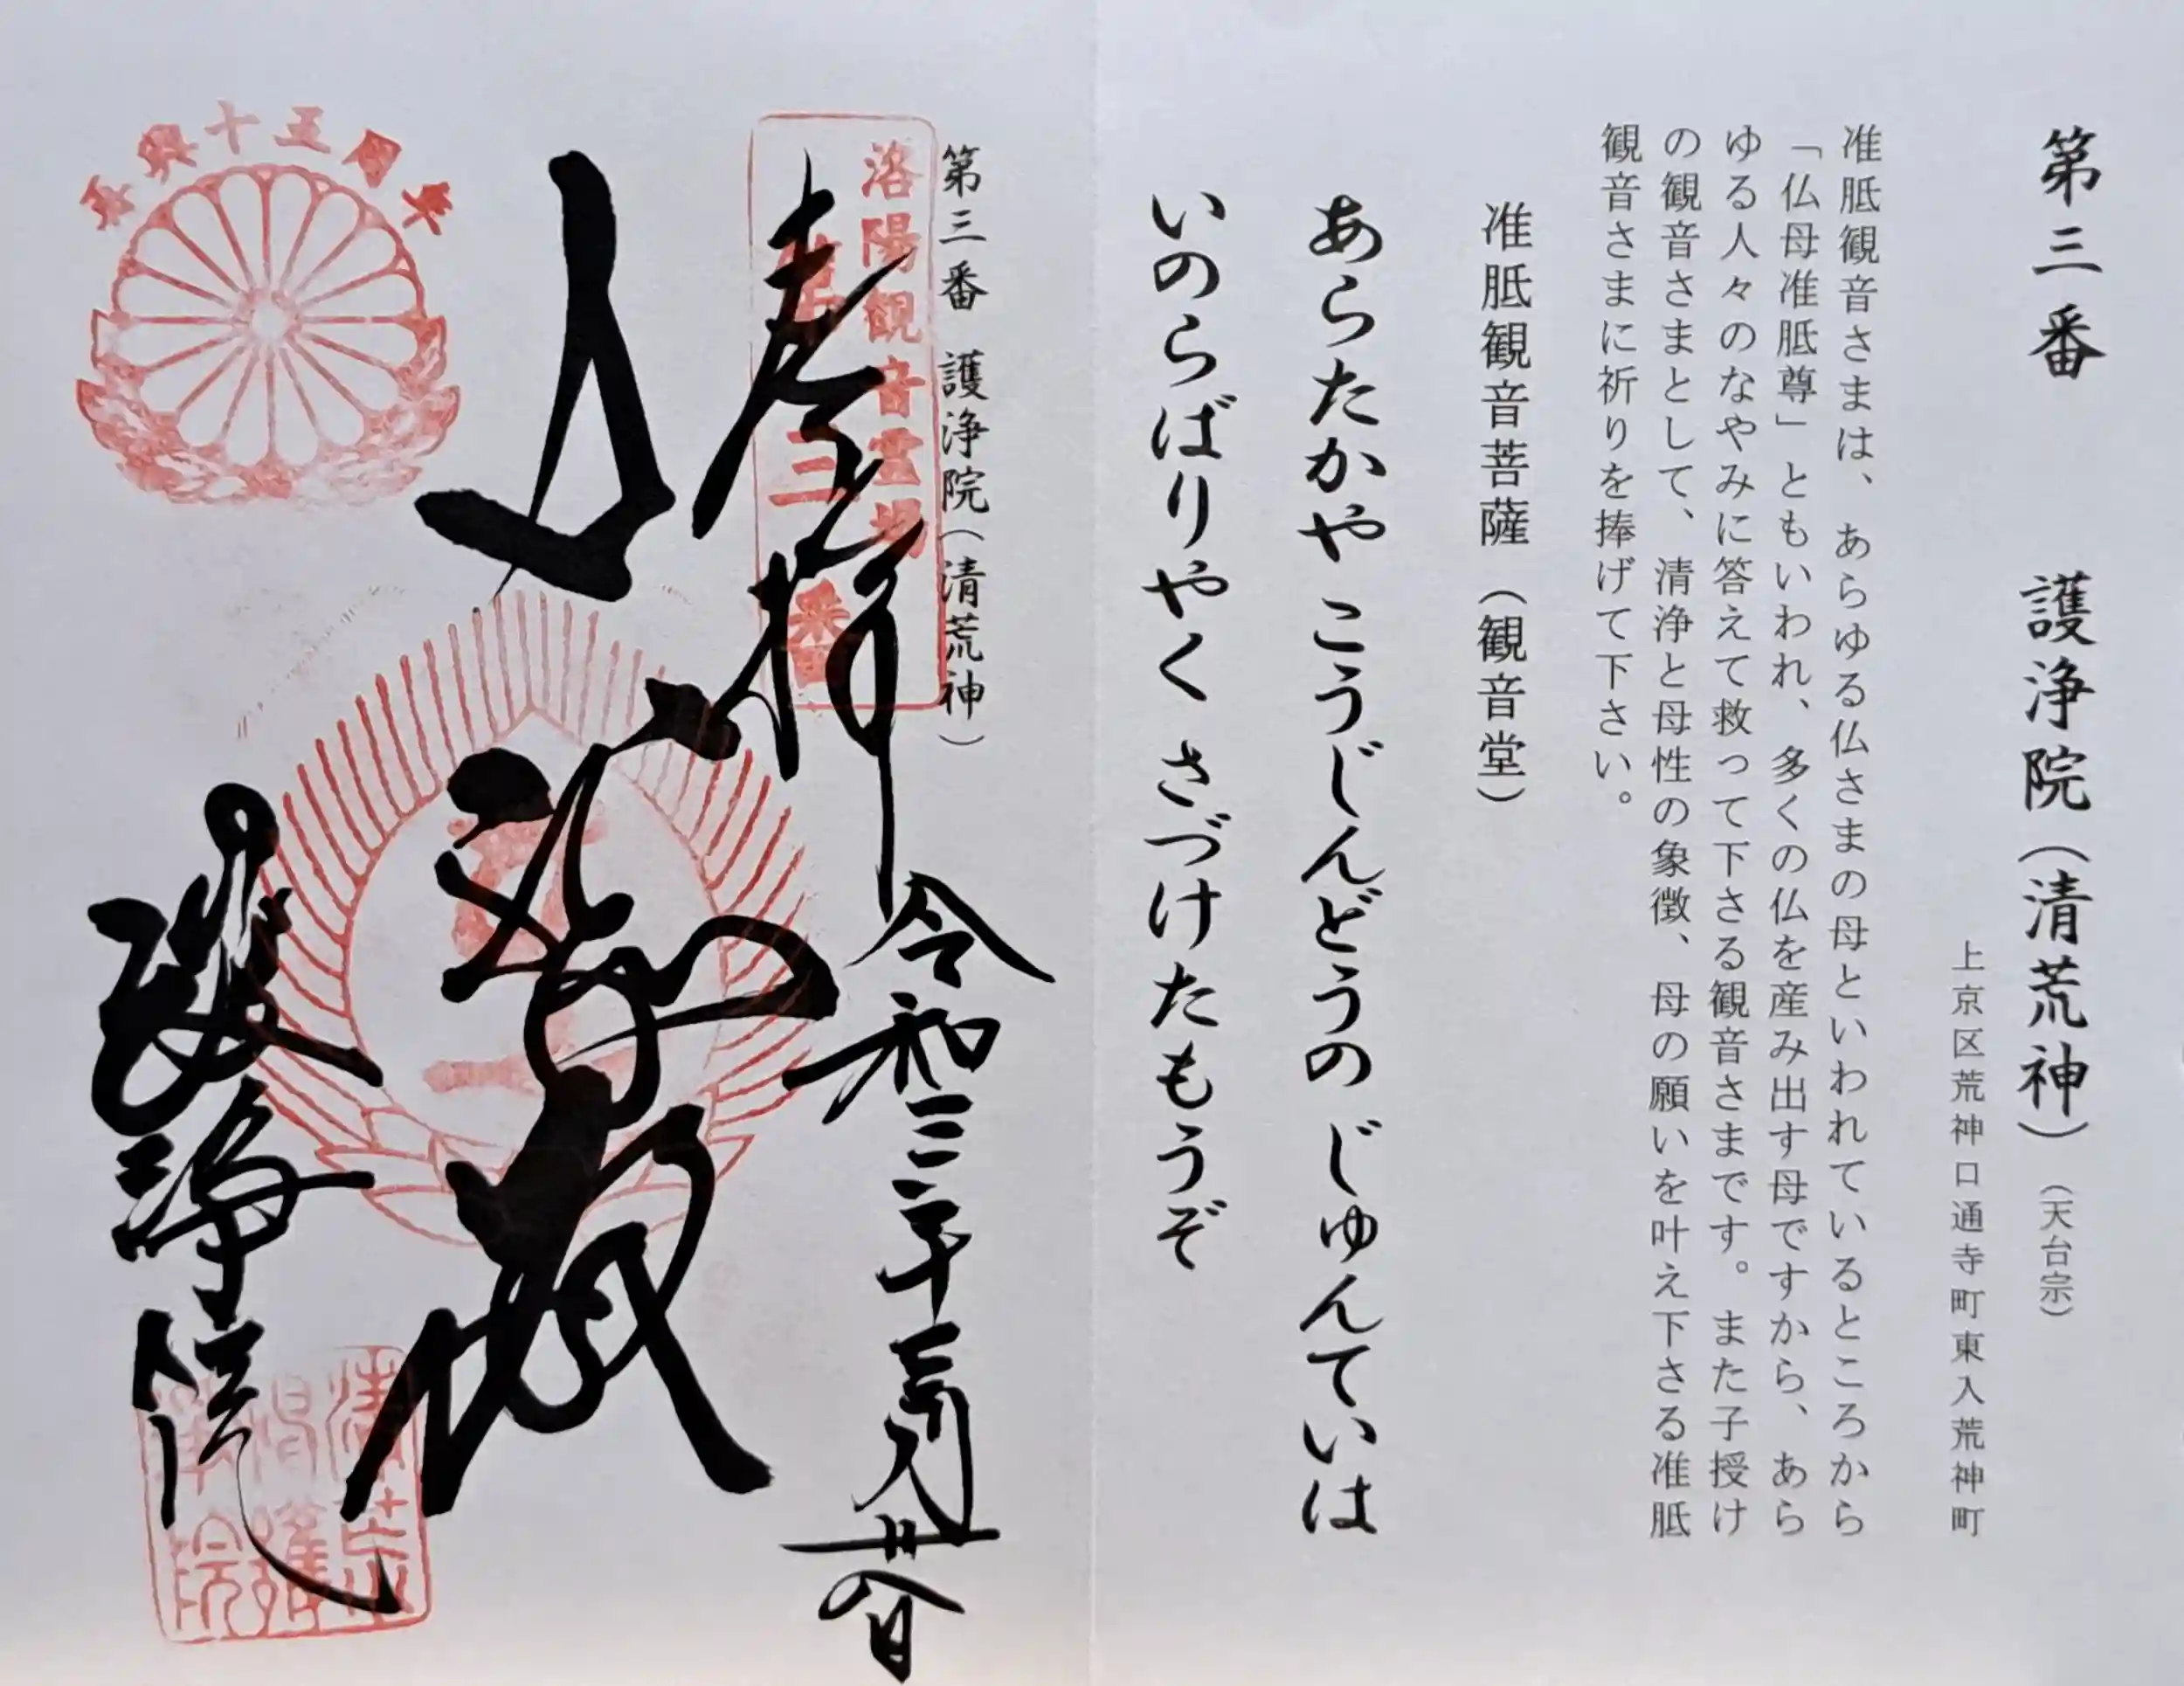 第三番 護浄院（清荒神）（天台宗）
上京区荒神口通寺町東入荒神町
准胝観音さまは、あらゆる仏さまの母といわれているところから
「仏母准胝尊」ともいわれ、多くの仏を産み出す母ですから、あら
ゆる人々のなやみに答えて救って下さる観音さまです。また子授け
の観音さまとして、清浄と母性の象徴、母の願いを叶え下さる准胝
観音さまに祈りを捧げて下さい。
准胝観音菩薩（観音堂）
あらたかや こうじんどうの じゅんていは
いのらばりやく さづけたもうぞ
第三番 護浄院（清荒神）
洛陽観音霊場
第三番
奉拝
令和三年
護浄院